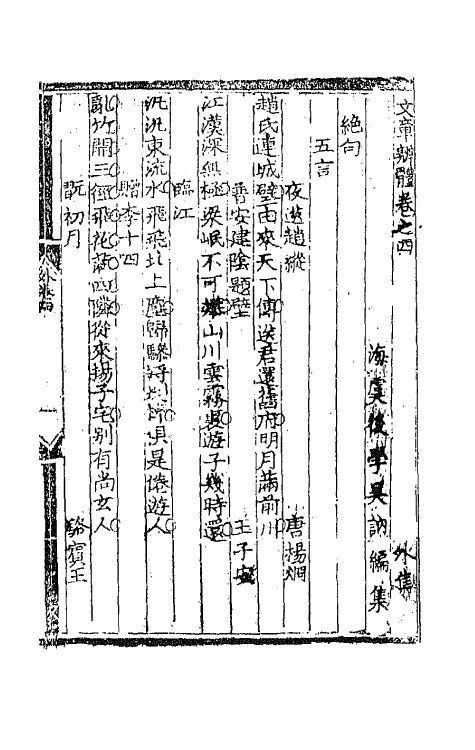 文章辨體卷之四 外集
海虞後學吳訥編集
絕句
五言
夜送趙縱 唐楊烱
趙氏連城璧由來天下傳送君還舊府明月滿前川
普安建陰題壁 王子安
江漢深無極梁岷不可攀山川雲霧裏遊子幾時還
臨江
汎汎東流水飛飛北上塵歸驂將別俱是倦遊人
贈李十四
亂竹開三徑飛花滿四隣從來揚子宅別有尚玄人
翫初月 駱賓王